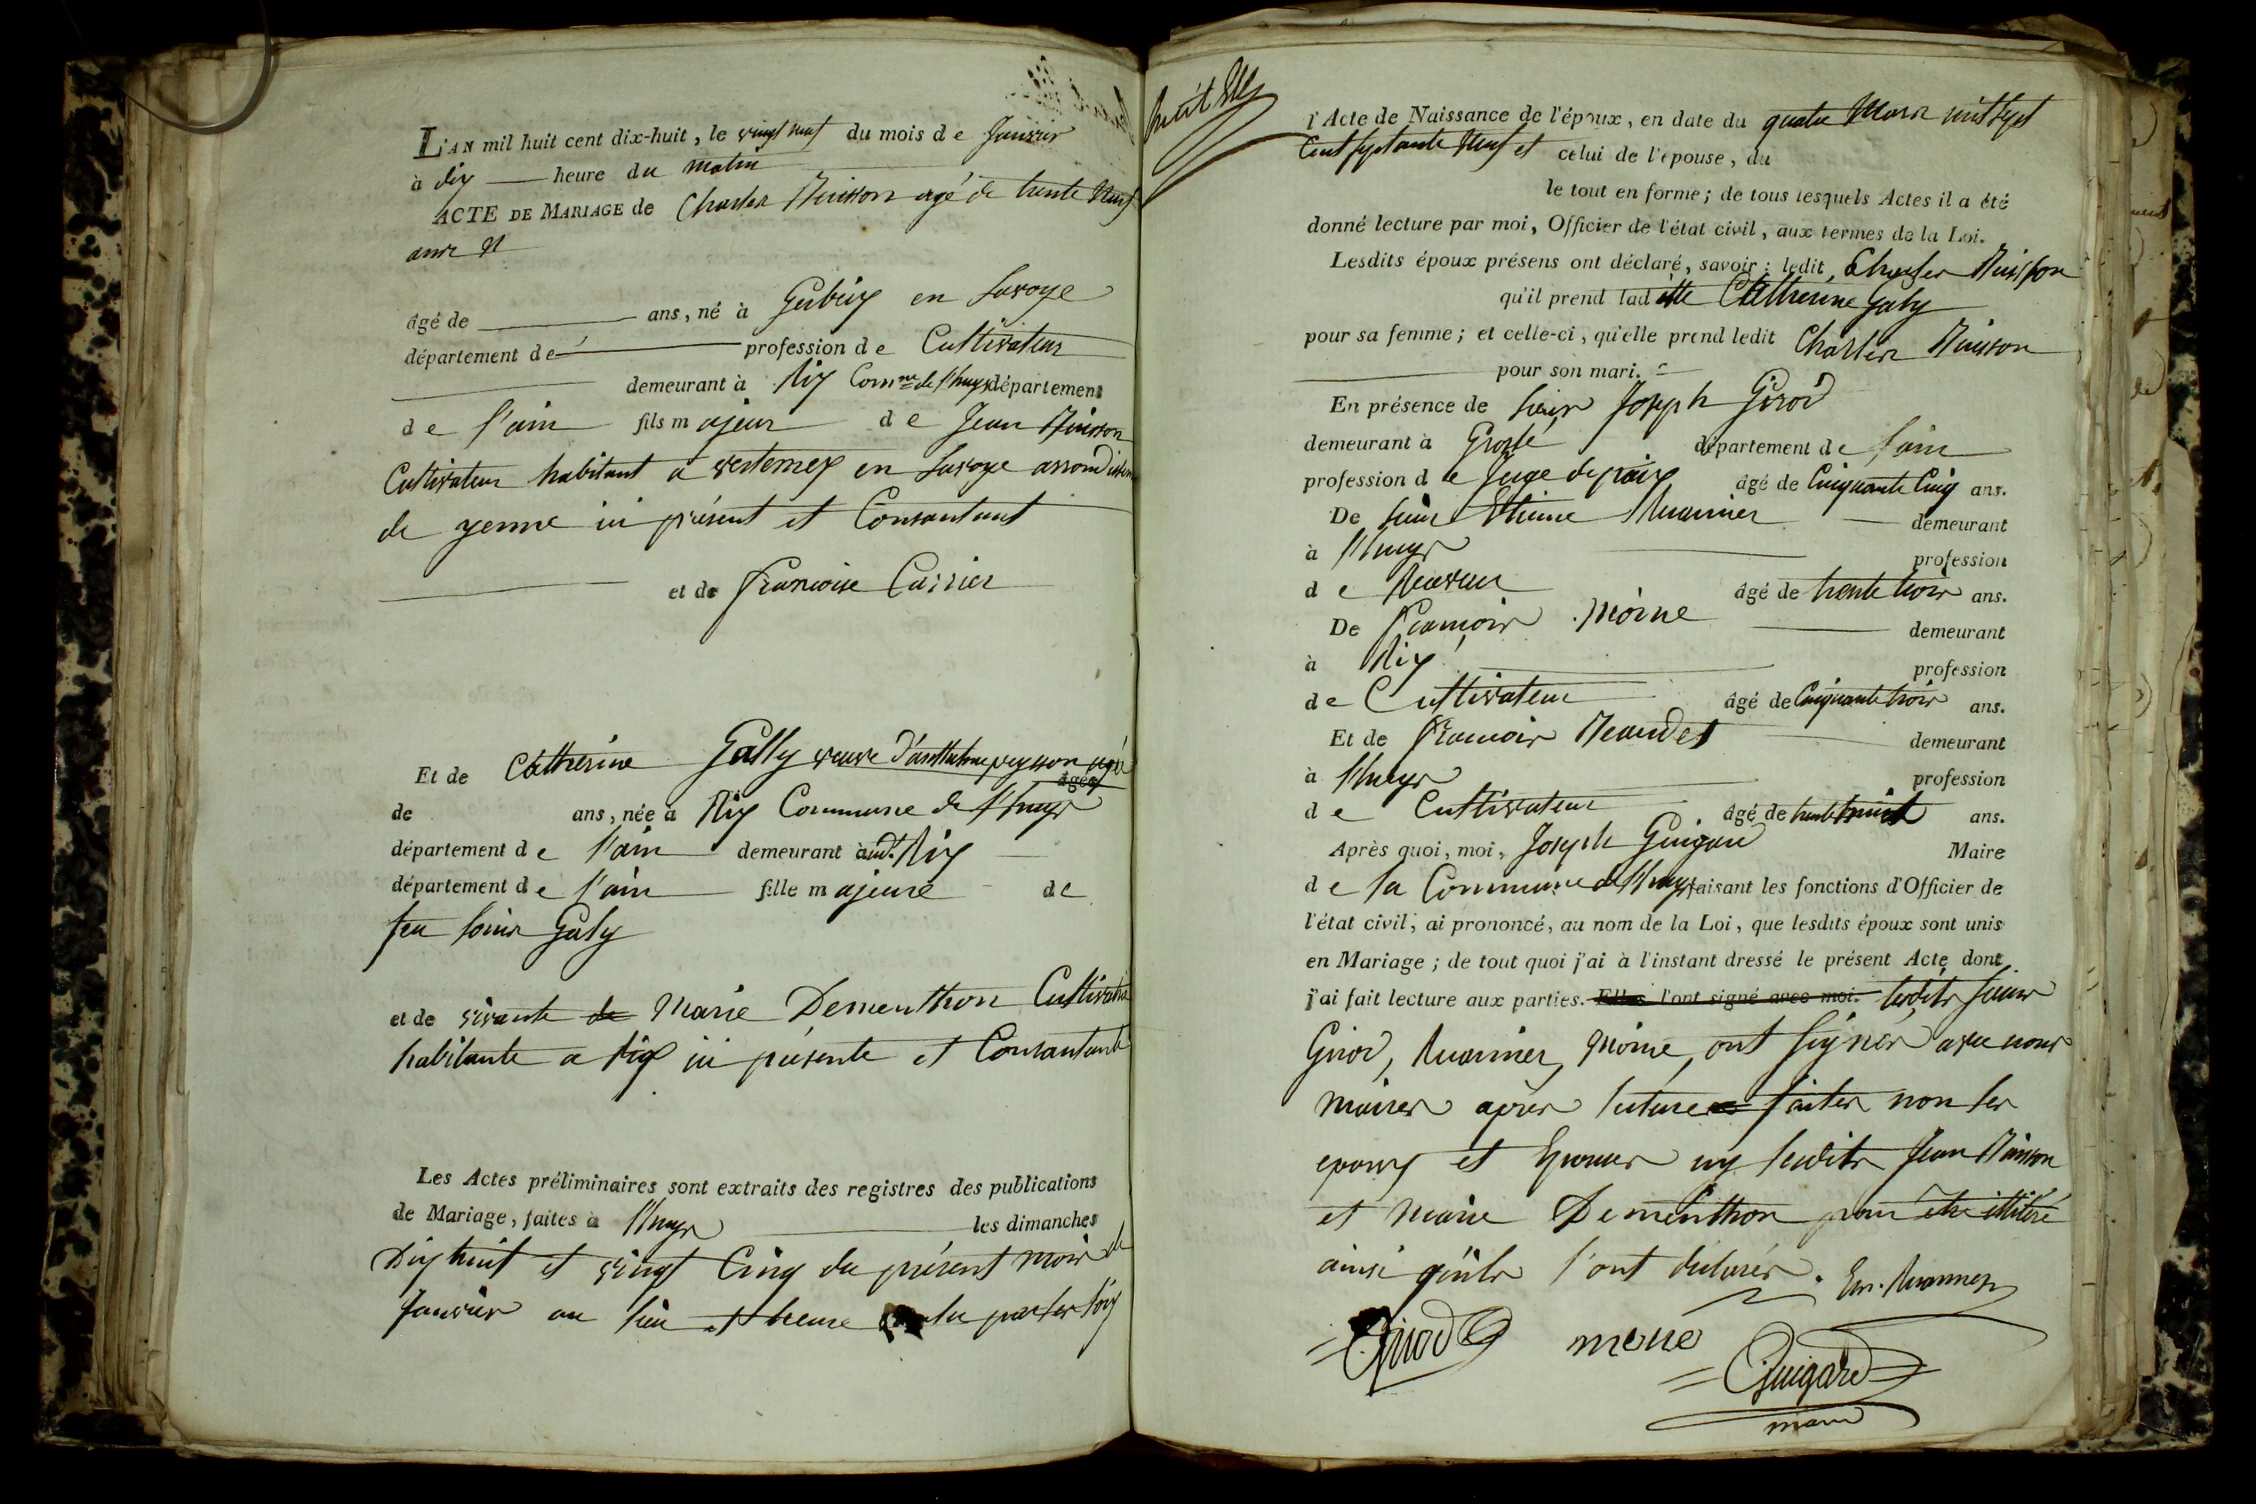 L'AN mil huit cent dix-huit, le vingt neuf du mois de Janvier
à dix heure du matin
ACTE DE MARIAGE de Charles Buisson agé de trente Neuf
ans et
âgé de ans, né à en Savoye
département de profession de Cultivateur
demeurant à Rix Comne de Lhuys département
de l'ain fils majeur de Jean Buisson
Cultivateur habitant a vertemex en Savoye arrondissem
de yenne ici présent et Consentant
et de Francoise Carrier
Et de Catherine Gally veuve d'anthelme peysson agée
âgée
de ans, née à Rix Commune de Lhuys
département de l'ain demeurant audt Rix
département de l'ain fille majeure de
feu Louis Galy
et de vivante de Marie Dementhon Cultivatrice
habitante a Rix ici présente et Consantante
Les Actes préliminaires sont extraits des registres des publications
de Mariage, faites à Lhuys les dimanches
Dix huit et vingt Cinq du présent mois de
Janvier au lieu et heure par les loix
l'Acte de Naissance de l'époux, en date du quatre Mars mil Sept
Cent Septante Neuf et celui de l'épouse, du
le tout en forme; de tous lesquels Actes il a été
donné lecture par moi, Officier de l'état civil, aux termes de la Loi.
Lesdits époux présens ont déclaré, savoir: ledit Charles Buisson
qu'il prend ladite Catherine Galy
pour sa femme; et celle-ci, qu'elle prend ledit Charles Buisson
pour son mari.
En présence de Sieur Joseph Girod
demeurant à Groslé département de l'ain
profession de Juge de paix âgé de Cinquante Cinq ans.
De Sieur Etienne demeurant
à Lhuys profession
de âgé de trente trois ans.
De Francois Moine demeurant
à Rix profession
de Cultivateur âgé de Cinquante trois ans.
Et de Francois demeurant
à Lhuys profession
de Cultivateur âgé de trente huit ans.
Après quoi, moi, Joseph Guigard Maire
de la Commune de Lhuys faisant les fonctions d'Officier de
l'état civil, ai prononcé, au nom de la Loi, que lesdits époux sont unis
en Mariage; de tout quoi j'ai à l'instant dressé le présent Acte dont
j'ai fait lecture aux parties. Elles l'ont signé avec moi. lesdits Sieurs
Girod, Moine, ont Signés avec nous
maires après lecture faites non les
epoux et Epouses ny lesdits Jean Buisson
et Marie Dementhon pour être illitéré
ainsi qu'ils l'ont déclarés.
Girod moine
Guigard
maire